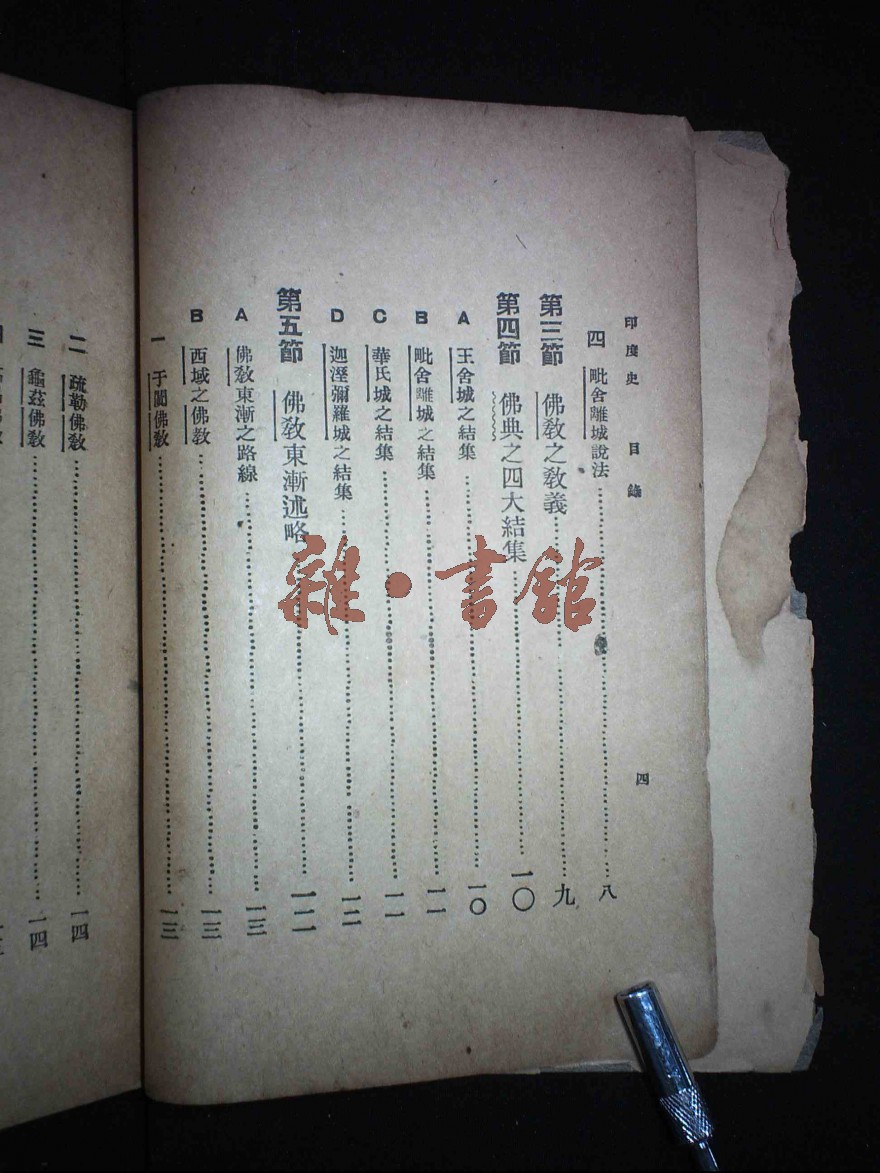 印度史 目錄 四
四 毗舍離城說法……八
第三節 佛敎之敎義……九
第四節 佛典之四大結集……一〇
A 王舍城之結集……一〇
B 毗舍離城之結集……一一
C 華氏城之結集……一一
D 迦溼彌羅城之結集……一二
第五節 佛敎東漸述略……一二
A 佛敎東漸之路線……一三
B 西域之佛敎……一三
一 于闐佛敎……一三
二 疏勒佛敎……一四
三 龜茲佛敎……一四
雜·書館